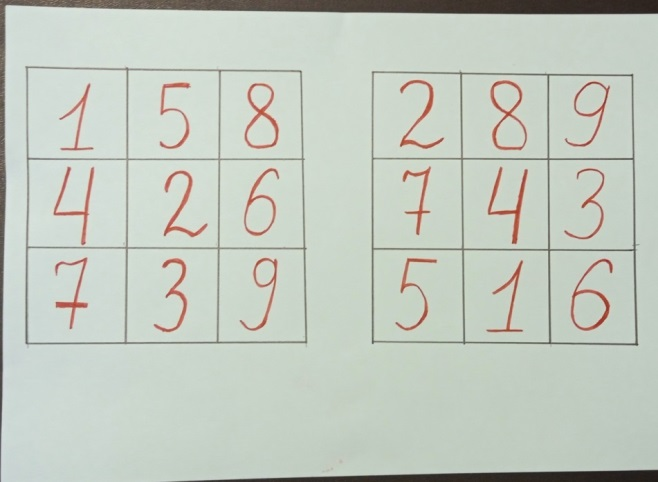 1 5 8
4 2 6
7 3 9
2 8 9
7 4 3
5 1 6